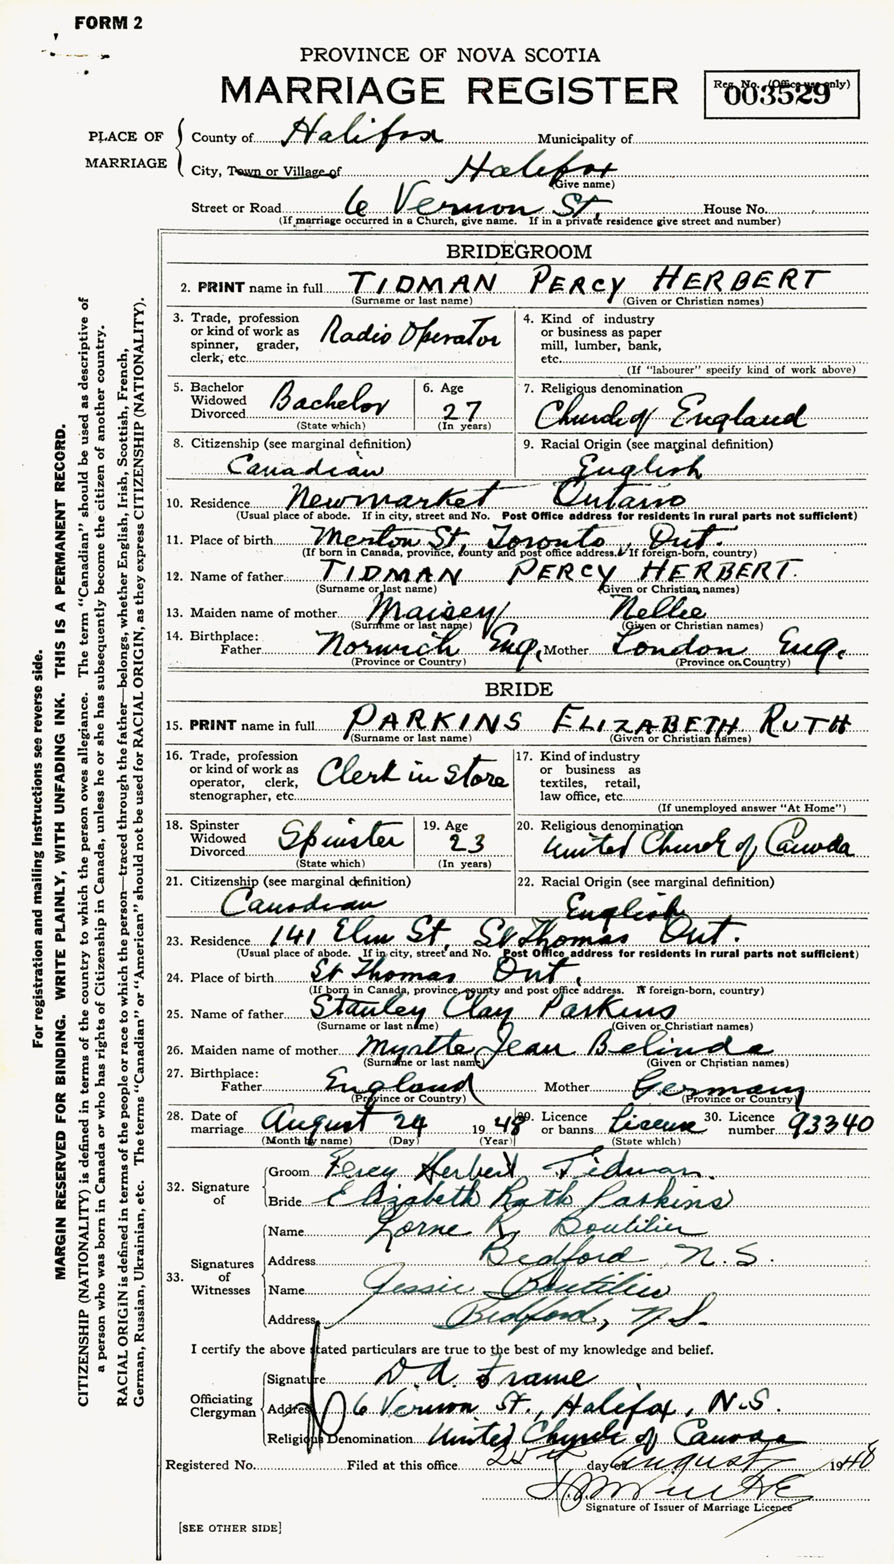 FORM 2
PROVINCE OF NOVA SCOTIA
MARRIAGE REGISTER
Reg. No. (Office use only)
003529
PLACE OF MARRIAGE
County of Halifax Municipality of
City, Town or Village of Halifax
(Give name)
Street or Road 6 Vernon St. House No.
(If marriage occurred in a Church, give name. If in a private residence give street and number)
BRIDEGROOM
2. PRINT name in full TIDMAN PERCY HERBERT
(Surname or last name) (Given or Christian names)
3. Trade, profession or kind of work as spinner, grader, clerk, etc. Radio Operator
4. Kind of industry or business as paper mill, lumber, bank, etc.
(If "labourer" specify kind of work above)
5. Bachelor Widowed Divorced Bachelor
(State which)
6. Age 27
(In years)
7. Religious denomination
Church of England
8. Citizenship (see marginal definition)
Canadian
9. Racial Origin (see marginal definition)
English
10. Residence Newmarket Ontario
(Usual place of abode. If in city, street and No. Post Office address for residents in rural parts not sufficient)
11. Place of birth Merton St, Toronto, Ont.
(If born in Canada, province, county and post office address. If foreign-born, country)
12. Name of father TIDMAN PERCY HERBERT.
(Surname or last name) (Given or Christian names)
13. Maiden name of mother Maisey Nellie
(Surname or last name) (Given or Christian names)
14. Birthplace:
Father Norwich Eng, Mother London Eng.
(Province or Country) (Province or Country)
BRIDE
15. PRINT name in full PARKINS ELIZABETH RUTH
(Surname or last name) (Given or Christian names)
16. Trade, profession or kind of work as operator, clerk, stenographer, etc. Clerk in Store
17. Kind of industry or business as textiles, retail, law office, etc.
(If unemployed answer "At Home")
18. Spinster Widowed Divorced Spinster
(State which)
19. Age 23
(In years)
20. Religious denomination
United Church of Canada
21. Citizenship (see marginal definition)
Canadian
22. Racial Origin (see marginal definition)
English
23. Residence 141 Elm St, St Thomas Ont.
(Usual place of abode. If in city, street and No. Post Office address for residents in rural parts not sufficient)
24. Place of birth St Thomas Ont.
(If born in Canada, province, county and post office address. If foreign-born, country)
25. Name of father Stanley Clay Parkins
(Surname or last name) (Given or Christian names)
26. Maiden name of mother Myrtle Jean Belinda
(Surname or last name) (Given or Christian names)
27. Birthplace:
Father England Mother Germany
(Province or Country) (Province or Country)
28. Date of marriage August 24 1948 29. Licence or banns License 30. Licence number 93340
(Month by name) (Day) (Year) (State which)
32. Signature of
Groom Percy Herbert Tidman.
Bride Elizabeth Ruth Parkins
33. Signatures of Witnesses
Name Lorne R. Boutilier
Address Bedford N.S.
Name Jessie Boutilier
Address Bedford, N.S.
I certify the above stated particulars are true to the best of my knowledge and belief.
Officiating Clergyman
Signature D. A. Frame
Address 6 Vernon St., Halifax, N.S.
Religious Denomination United Church of Canada
Registered No. Filed at this office 25th day of August 1948
Signature of Issuer of Marriage Licence
[SEE OTHER SIDE]
For registration and mailing instructions see reverse side.
MARGIN RESERVED FOR BINDING. WRITE PLAINLY, WITH UNFADING INK. THIS IS A PERMANENT RECORD.
CITIZENSHIP (NATIONALITY) is defined in terms of the country to which the person owes allegiance. The term "Canadian" should be used as descriptive of
a person who was born in Canada or who has rights of Citizenship in Canada, unless he or she has subsequently become the citizen of another country.
RACIAL ORIGIN is defined in terms of the people or race to which the person—traced through the father—belongs, whether English, Irish, Scottish, French,
German, Russian, Ukrainian, etc. The terms "Canadian" or "American" should not be used for RACIAL ORIGIN, as they express CITIZENSHIP (NATIONALITY).